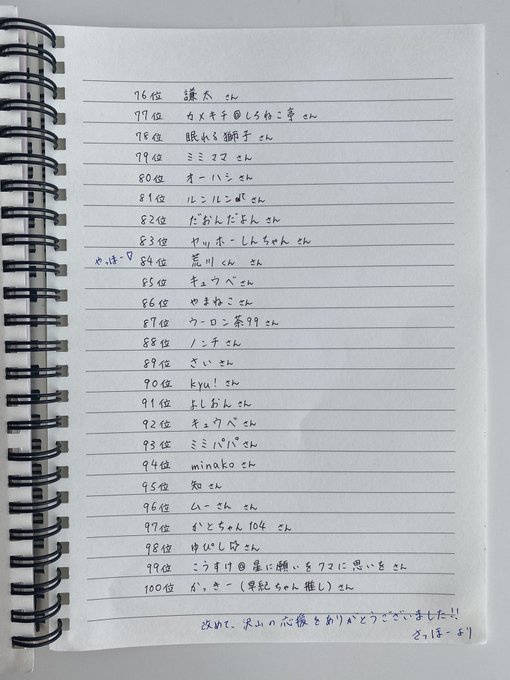 76位 謙太 さん
77位 カメキチ@しろねこ亭 さん
78位 眠れる獅子 さん
79位 ミミママ さん
80位 オーハシ さん
81位 ルンルン🎶 さん
82位 だおんだよん さん
83位 ヤッホーしんちゃん さん
やっほー♡ 84位 荒川くん さん
85位 キュウべ さん
86位 やまねこ さん
87位 ウーロン茶99 さん
88位 ノンチ さん
89位 さい さん
90位 kyu! さん
91位 よしおん さん
92位 キュウべ さん
93位 ミミパパ さん
94位 minako さん
95位 知 さん
96位 ムーさん さん
97位 かとちゃん104 さん
98位 ゆぴし☆ さん
99位 こうすけ@星に願いをクマに思いを さん
100位 かっきー(早紀ちゃん推し) さん
改めて、沢山の応援をありがとうございました!!
さっほーより